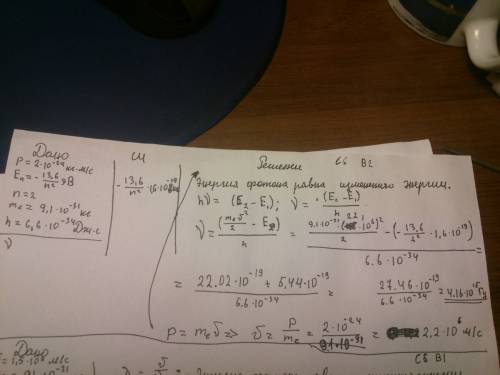 Дано
P = 2·10^-24 кг·м/с
En = - 13,6/n² эВ
n = 2
me = 9,1·10^-31 кг
h = 6,6·10^-34 Дж·с
ν
СИ
- 13,6/n² · 1,6·10^-19
Решение C6 B2
Энергия фотона равна изменению энергии.
hν = (E2 - E1); ν = (E2 - E1)/h
ν = (meυ²/2 - E2)/h = (9,1·10^-31·(2,2·10^6)²/2 - (- 13,6/2² · 1,6·10^-19))/6.6·10^-34 =
= (22.02·10^-19 + 5,44·10^-19)/6.6·10^-34 = 27.46·10^-19/6.6·10^-34 = 4.16·10^15 Гц
P = meυ => υ = P/me = 2·10^-24/9,1·10^-31 = 2,2·10^6 м/с
C6 B1
Дано
= 1,5·10^6 м/с